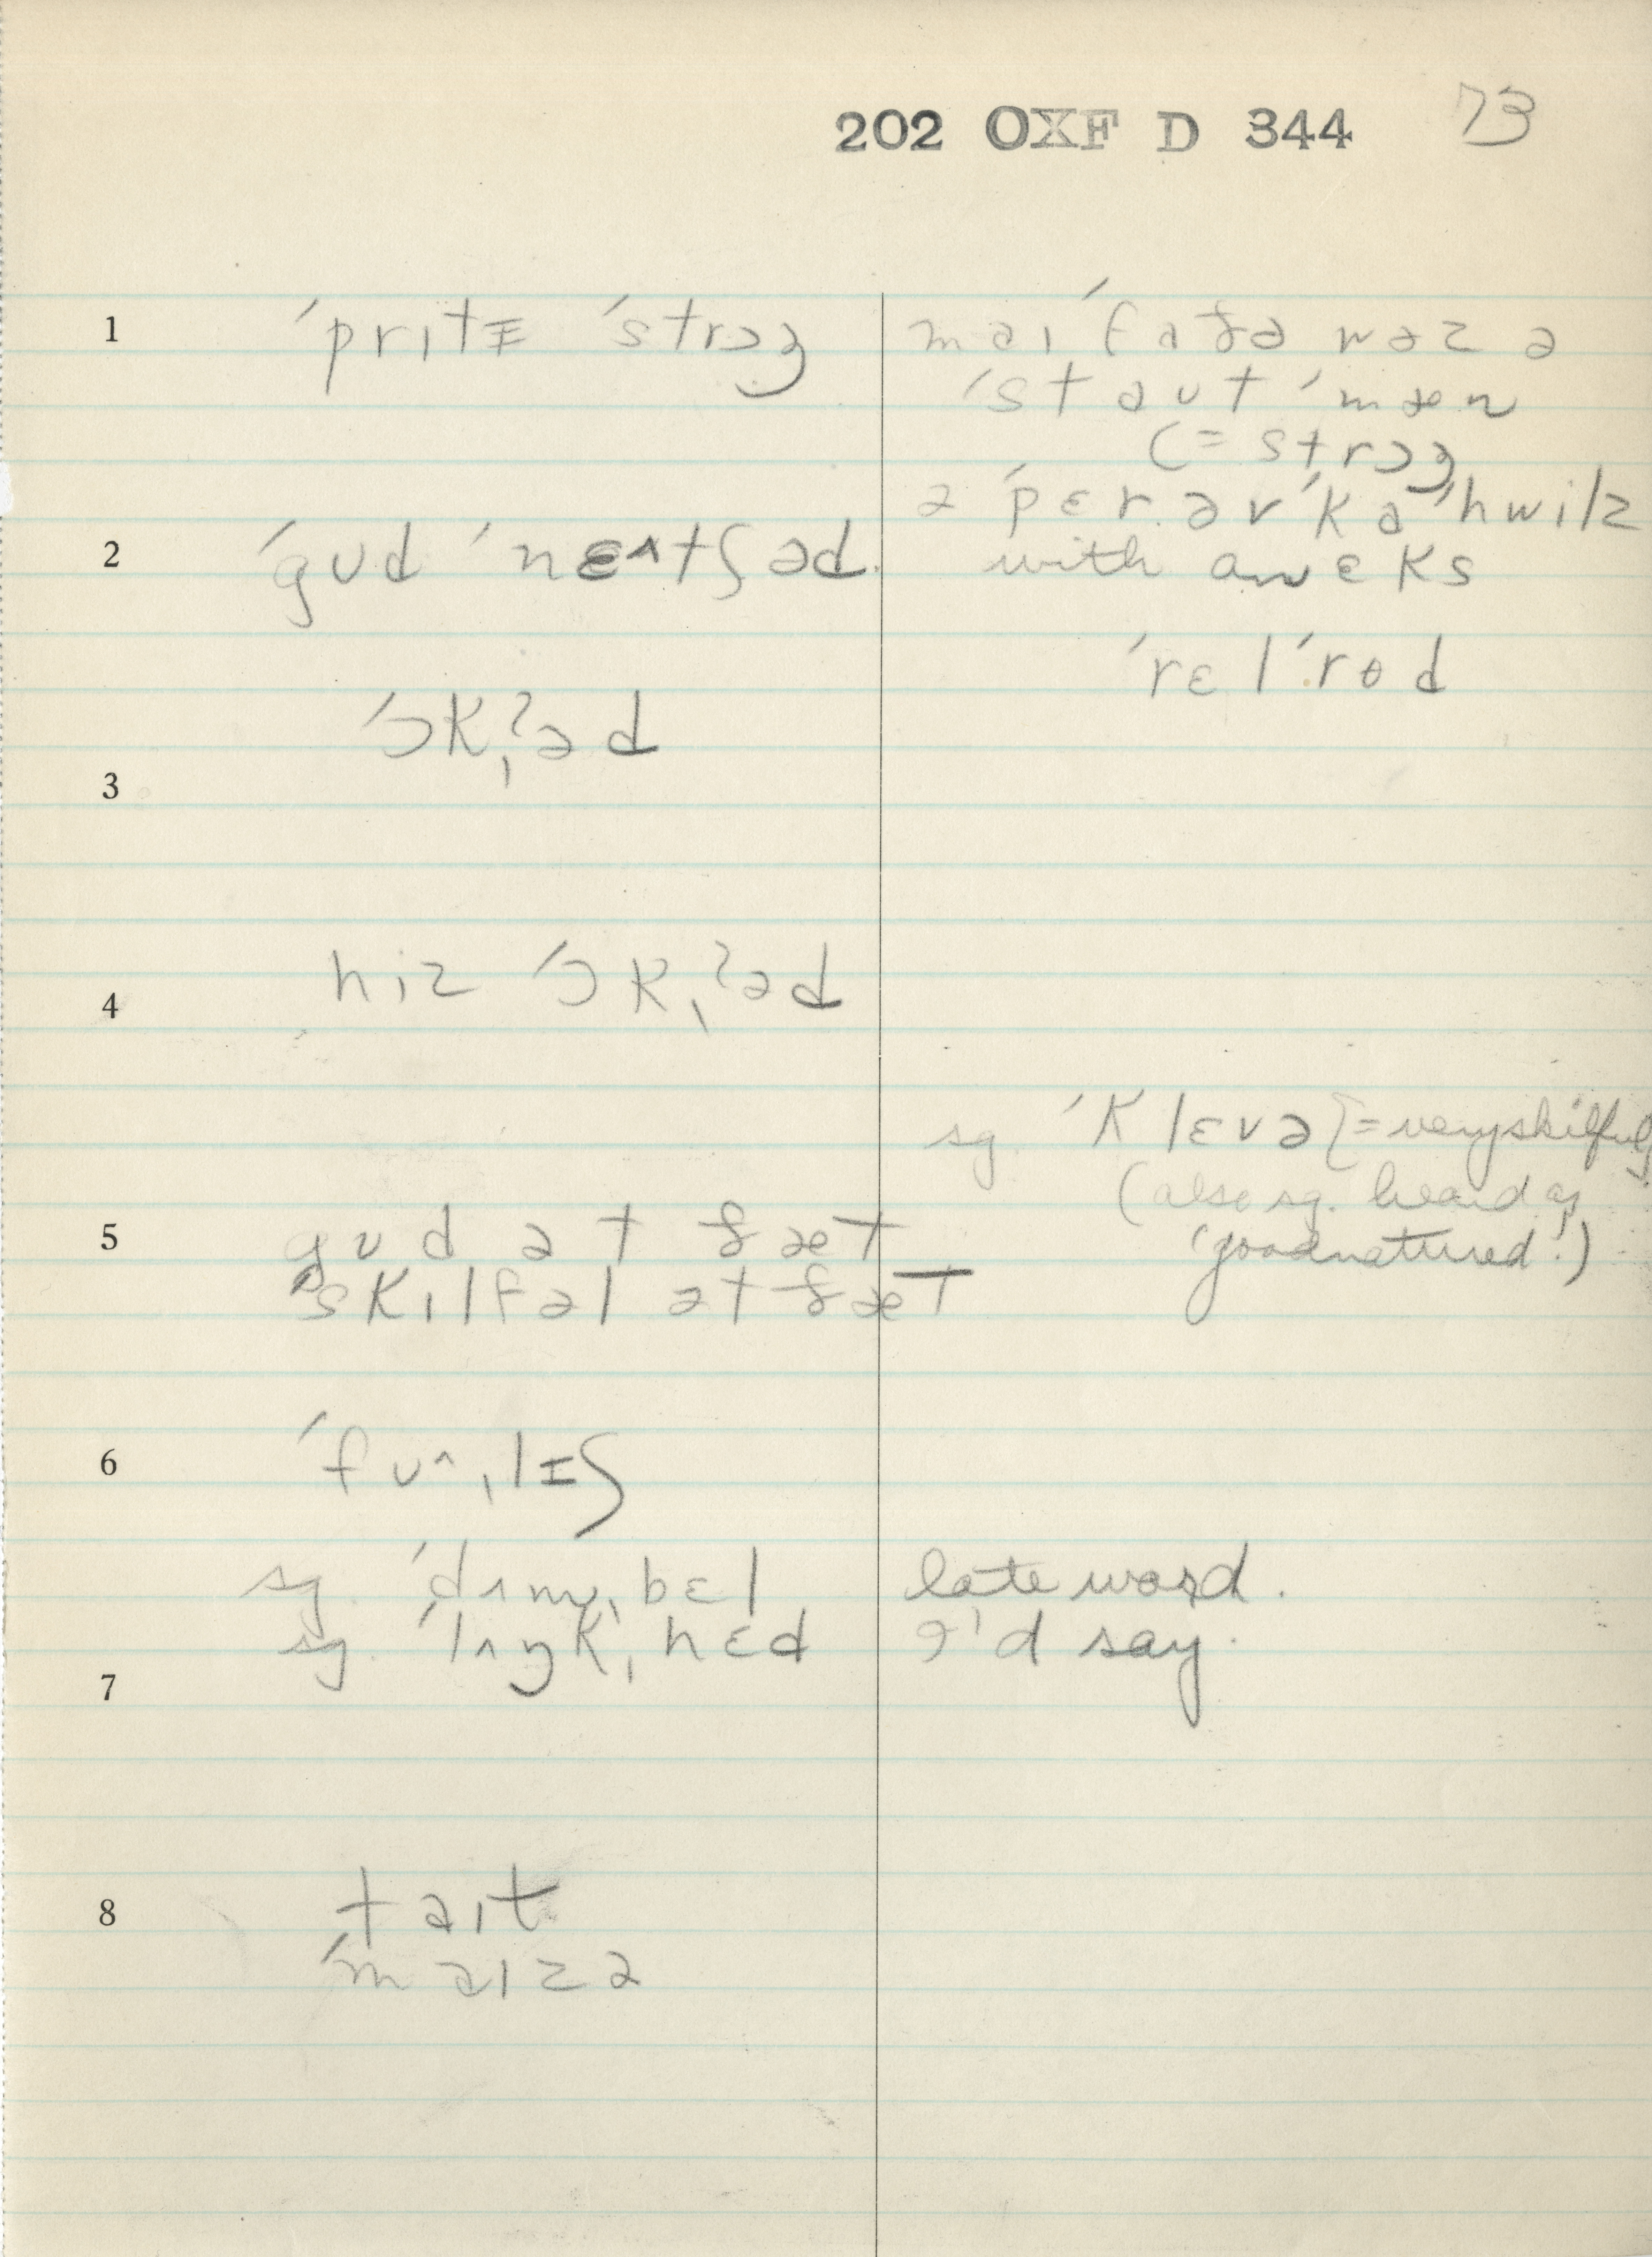 202 OXF D 344 73
1 ˈprɪtɪ̵ ˈstrɔŋ
maɪ ˈfaðə wəz ə
ˈstaʊt ˈmæn
(= strɔŋ
ə ˈpɛr əv ˈkaˈhwilz
2 ˈgʊd ˈnɛ^tʃəd.
with an ɛks
ˈrɛlˈrɵd
ˈɔkˌʔəd
3
4 hɪz ˈɔkˌʔəd
sg. ˈklɛvə [= very skilful]
(also sg. heard as
'goodnatured'.)
5 gʊd ət ðæt
ˈskɪlfəl ət ðæt
6 ˈfʊ^ˌlɪʃ
sg. ˈdʌmˌbɛl
late word.
sg. ˈlʌŋkˌhɛd
I'd say.
7
8 taɪt
ˈmaɪzə